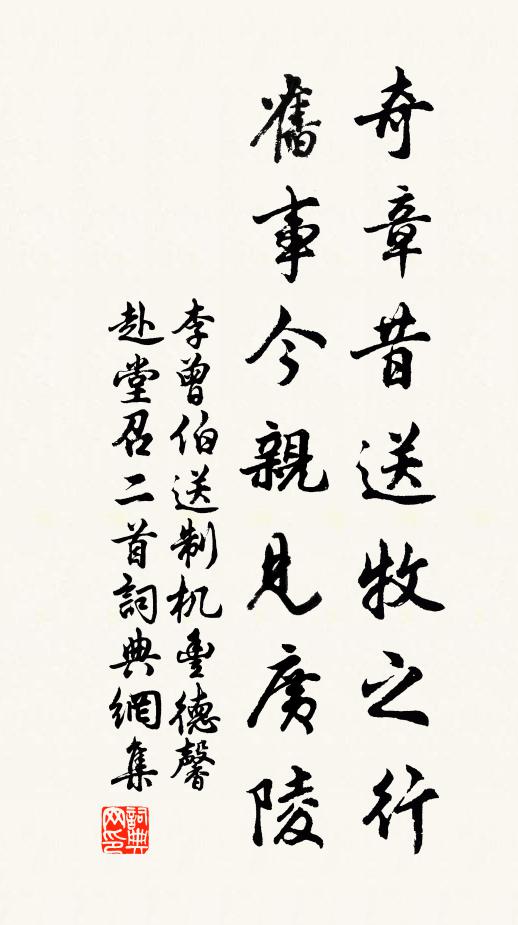 奇章昔送牧之行
舊事今親見廣陵
李曾伯送制机豐德馨
赴堂召二首詞典網集
詞典網印